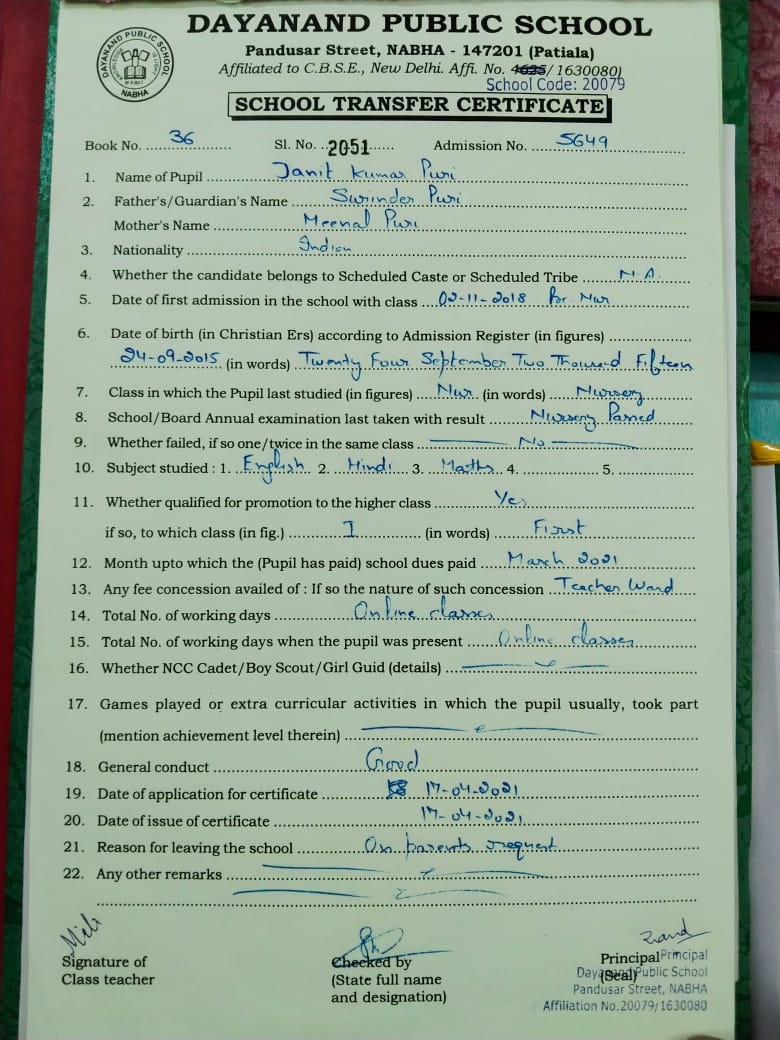 DAYANAND PUBLIC SCHOOL
Pandusar Street, NABHA - 147201 (Patiala)
Affiliated to C.B.S.E., New Delhi. Affi. No. 4635/ 1630080)
School Code: 20079
DAYANAND PUBLIC SCHOOL
NABHA
SCHOOL TRANSFER CERTIFICATE
Book No. 36 Sl. No. 2051 Admission No. 5649
1. Name of Pupil Janit Kumar Puri
2. Father's/Guardian's Name Surinder Puri
Mother's Name Meenal Puri
3. Nationality Indian
4. Whether the candidate belongs to Scheduled Caste or Scheduled Tribe N.A.
5. Date of first admission in the school with class 02-11-2018 Pr. Nur
6. Date of birth (in Christian Ers) according to Admission Register (in figures)
24-09-2015 (in words) Twenty Four September Two Thousand Fifteen
7. Class in which the Pupil last studied (in figures) Nur. (in words) Nursery
8. School/Board Annual examination last taken with result Nursery Passed
9. Whether failed, if so one/twice in the same class No
10. Subject studied : 1. English 2. Hindi 3. Maths 4. 5.
11. Whether qualified for promotion to the higher class Yes
if so, to which class (in fig.) I (in words) First
12. Month upto which the (Pupil has paid) school dues paid March 2021
13. Any fee concession availed of : If so the nature of such concession Teacher Ward
14. Total No. of working days Online classes
15. Total No. of working days when the pupil was present Online classes
16. Whether NCC Cadet/Boy Scout/Girl Guid (details)
17. Games played or extra curricular activities in which the pupil usually, took part
(mention achievement level therein)
18. General conduct Good
19. Date of application for certificate 17-04-2021
20. Date of issue of certificate 17-04-2021
21. Reason for leaving the school On parents request
22. Any other remarks
Signature of
Class teacher
Checked by
(State full name
and designation)
Principal
(Seal)
Principal
Dayanand Public School
Pandusar Street, NABHA
Affiliation No.20079/1630080